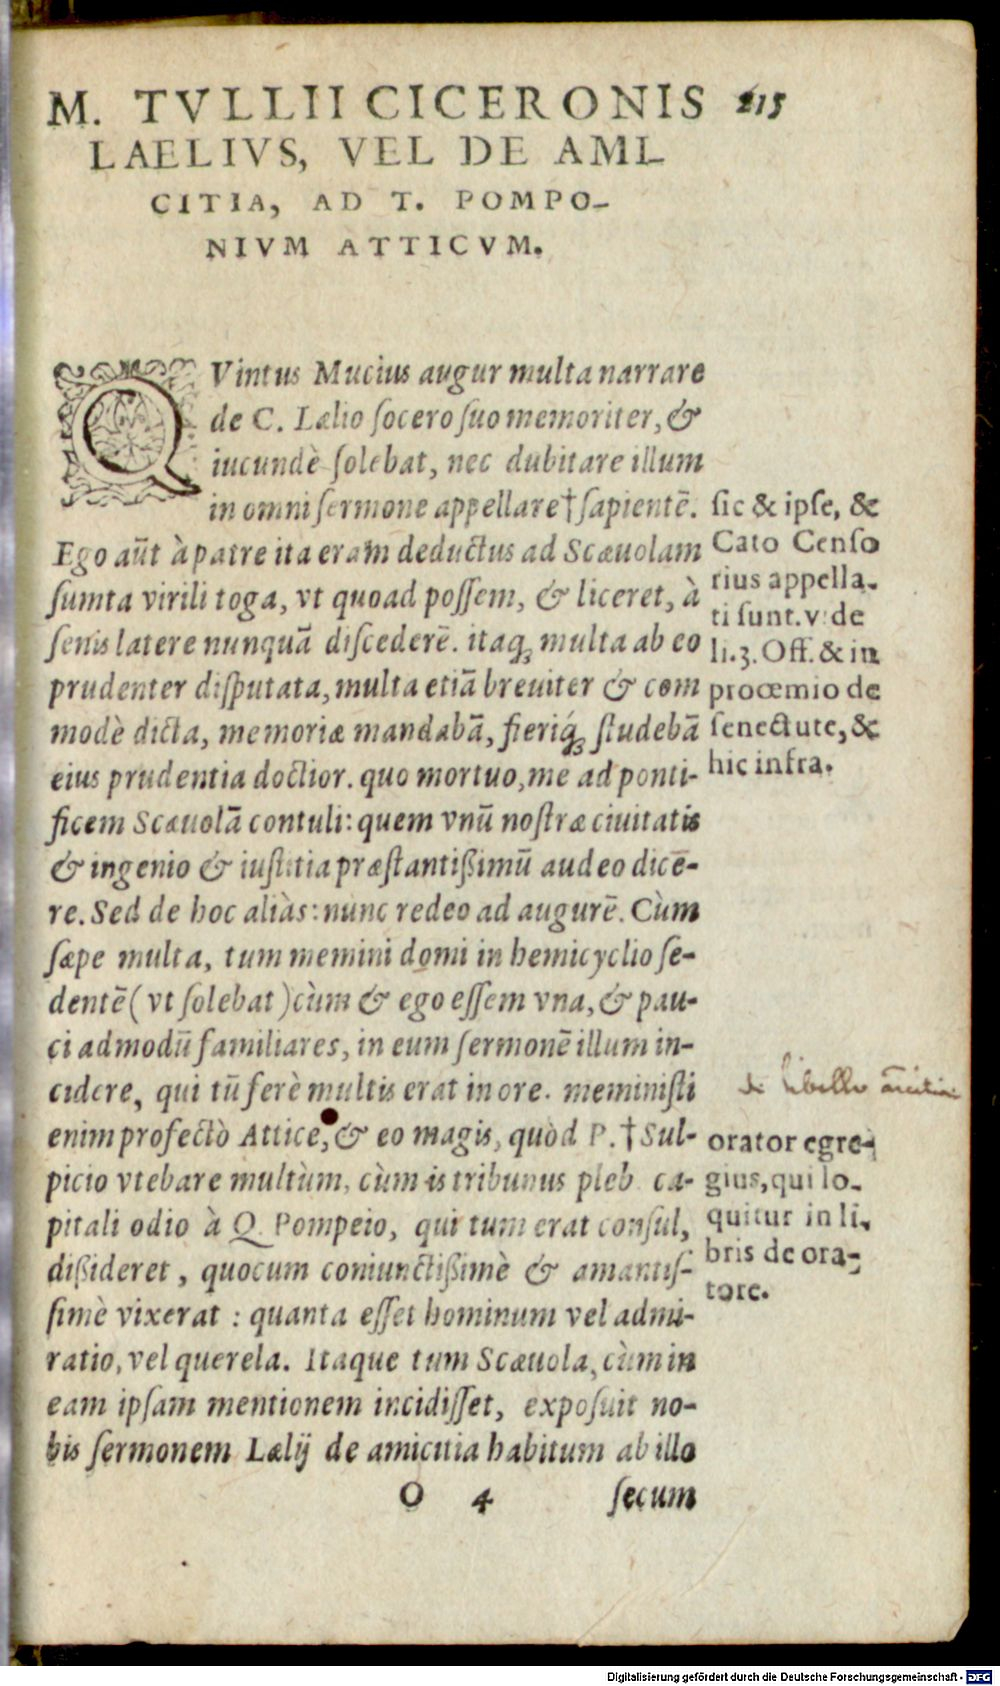 M. TVLLII CICERONIS 215
LAELIVS, VEL DE AMI-
CITIA, AD T. POMPO-
NIVM ATTICVM.
QVintus Mucius augur multa narrare
de C. Lælio ſocero ſuo memoriter, &
iucundè ſolebat, nec dubitare illum
in omni ſermone appellare † ſapientē.
Ego aūt à patre ita eram deductus ad Scæuolam
ſumta virili toga, vt quoad poſſem, & liceret, à
ſenis latere nunquā diſcederē. itaq; multa ab eo
prudenter diſputata, multa etiā breuiter & com
modè dicta, memoriæ mandabā, fieriq́; ſtudebā
eius prudentia doctior. quo mortuo, me ad ponti-
ficem Scæuolā contuli: quem vnū noſtræ ciuitatis
& ingenio & iuſtitia præſtantißimū audeo dicē-
re. Sed de hoc aliàs: nunc redeo ad augurē. Cùm
ſæpe multa, tum memini domi in hemicyclio ſe-
dentē (vt ſolebat) cùm & ego eſſem vna, & pau-
ci admodū familiares, in eum ſermonē illum in-
cidere, qui tū ferè multis erat in ore. meminiſti
enim profectò Attice, & eo magis, quòd P. † Sul-
picio vtebare multùm, cùm is tribunus pleb ca-
pitali odio à Q. Pompeio, qui tum erat conſul,
dißideret, quocum coniunctißimè & amantiſ-
ſimè vixerat : quanta eſſet hominum vel admi-
ratio, vel querela. Itaque tum Scæuola, cùm in
eam ipſam mentionem incidiſſet, expoſuit no-
bis ſermonem Lælij de amicitia habitum ab illo
O 4 ſecum
ſic & ipſe, &
Cato Cenſo
rius appella-
ti ſunt. v. de
li. 3. Off. & in
procœmio de
ſenectute, &
hic infra.
libello
orator egre-
gius, qui lo-
quitur in li-
bris de ora-
tore.
Digitalisierung gefördert durch die Deutsche Forschungsgemeinschaft - DFG